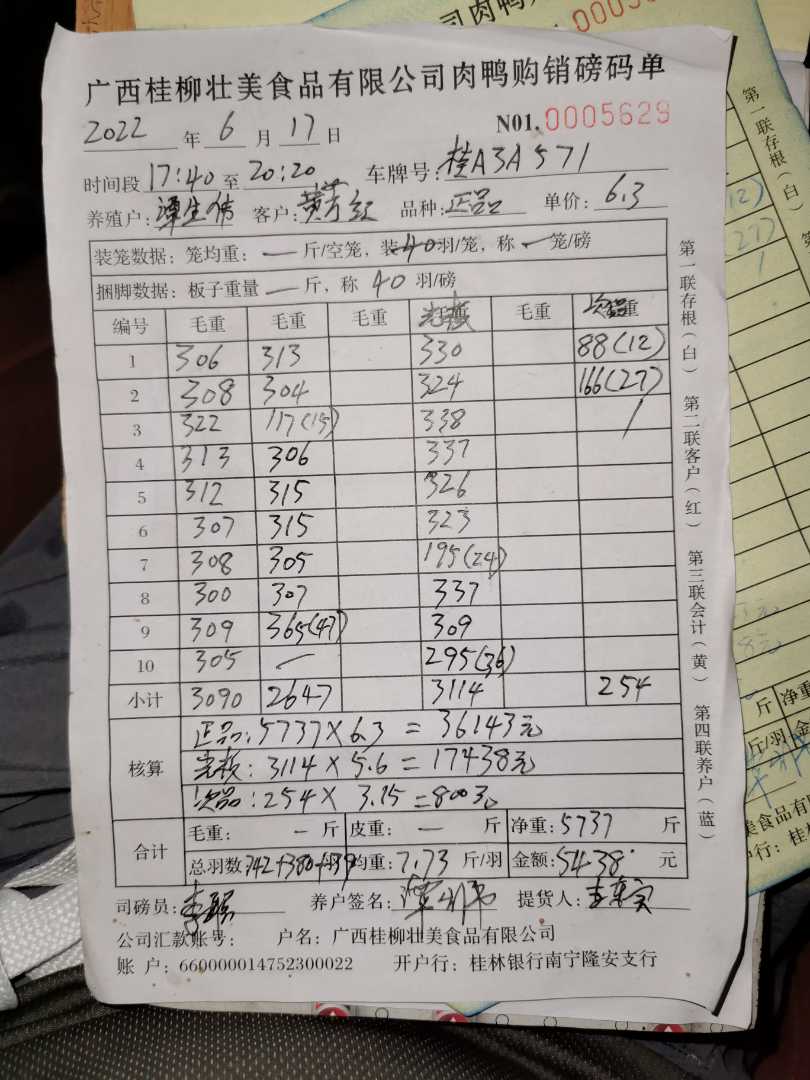 广西桂柳壮美食品有限公司肉鸭购销磅码单
2022 年 6 月 17 日 N01.0005629
时间段 17:40 至 20:20 车牌号: 桂A3A571
养殖户: 客户: 品种: 正品 单价: 6.3
装笼数据: 笼均重: — 斤/空笼, 装40羽/笼, 称 — 笼/磅
捆脚数据: 板子重量 — 斤, 称 40 羽/磅
编号 毛重 毛重 毛重 毛重 次品
1 306 313 330 88(12)
2 308 304 324 166(27)
3 322 117(15) 338 /
4 313 306 337
5 312 315 326
6 307 315 323
7 308 305 195(24)
8 300 307 337
9 309 365(47) 309
10 305 — 295(36)
小计 3090 2647 3114 254
核算
正品: 5737 × 6.3 = 36143元
3114 × 5.6 = 17438元
次品: 254 × 3.15 = 800元
合计 毛重: — 斤 皮重: — 斤 净重: 5737 斤
总羽数 742+380+39 均重: 7.73 斤/羽 金额: 54381 元
司磅员: 养户签名: 提货人:
公司汇款账号: 户名: 广西桂柳壮美食品有限公司
账 户: 660000014752300022 开户行: 桂林银行南宁隆安支行
第一联存根(白) 第二联客户(红) 第三联会计(黄) 第四联养户(蓝)
司肉鸭
0005
第一联存根(白)
12)
27)
斤 净重
斤/羽 金
美食品有
行: 桂